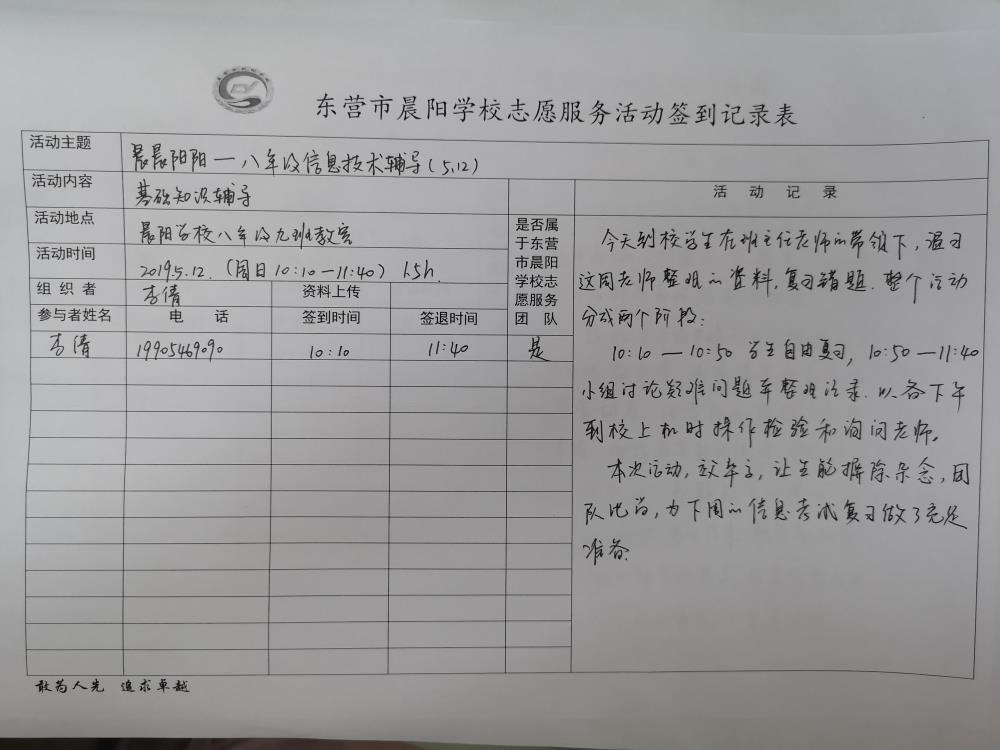 东营市晨阳学校志愿服务活动签到记录表
活动主题 晨晨阳阳—八年级信息技术辅导(5.12)
活动内容 基础知识辅导
活动地点 晨阳学校八年级九班教室
活动时间 2019.5.12.(周日10:10—11:40) 1.5h.
组织者 李倩 资料上传
参与者姓名 电话 签到时间 签退时间 是否属于东营市晨阳学校志愿服务团队
李倩 19905469090 10:10 11:40 是
活动记录
今天到校学生在班主任老师的带领下,温习
这周老师整理的资料,复习错题.整个活动
分成两个阶段:
10:10—10:50 学生自由复习, 10:50—11:40
小组讨论疑难问题并整理记录.以备下午
到校上机时操作检验和询问老师.
本次活动,效率高,让生能摒除杂念,团
队比学,为下周的信息考试复习做了充足
准备.
敢为人先 追求卓越